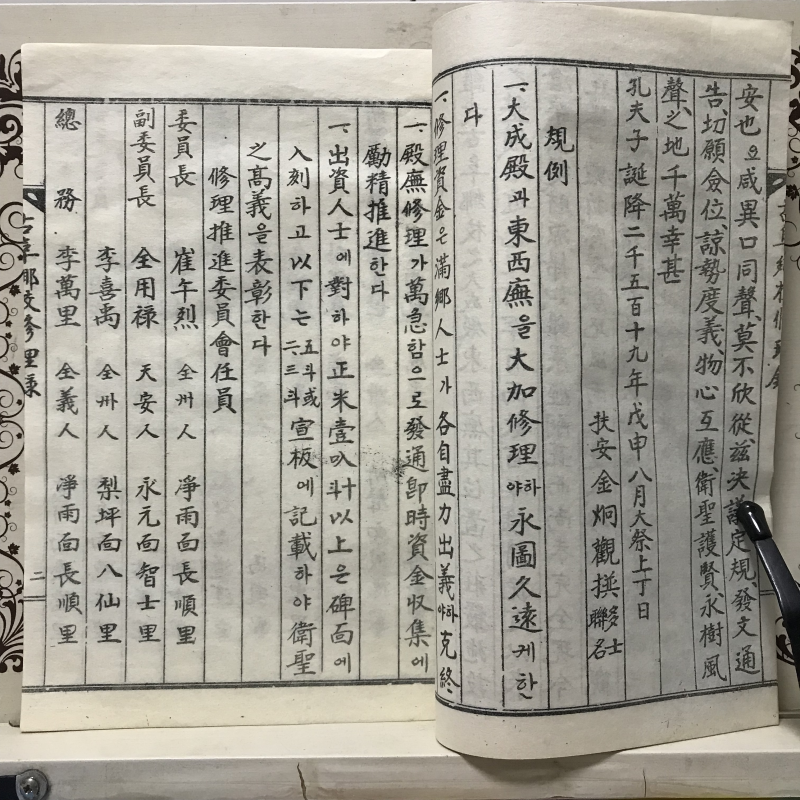 安也 으 咸異口同聲、莫不欣從、玆決議定規、發文通
告、切願僉位、諒勢度義、物心互應、衛聖護賢、永樹風
聲、之地千萬幸甚
孔夫子誕降二千五百十九年戊申八月大祭上丁日
扶安金炯觀撰 多士聯名
規例
一、大成殿과東西廡을大加修理하야永圖久遠케한
다
一、修理資金은滿鄕人士가各自盡力出義하야克終
一、殿廡修理가萬急함으로發通卽時資金收集에
勵精推進한다
一、出資人士에對하야正米壹叺十斗以上은碑面에
入刻하고以下는五斗或二、三斗宣板에記載하야衛聖
之高義을表彰한다
修理推進委員會任員
委員長 崔午烈 全州人 淨雨面長順里
副委員長 全用祿 天安人 永元面智士里
李喜禹 全州人 梨坪面八仙里
總務 李萬里 全義人 淨雨面長順里
古阜鄕校修理錄
二